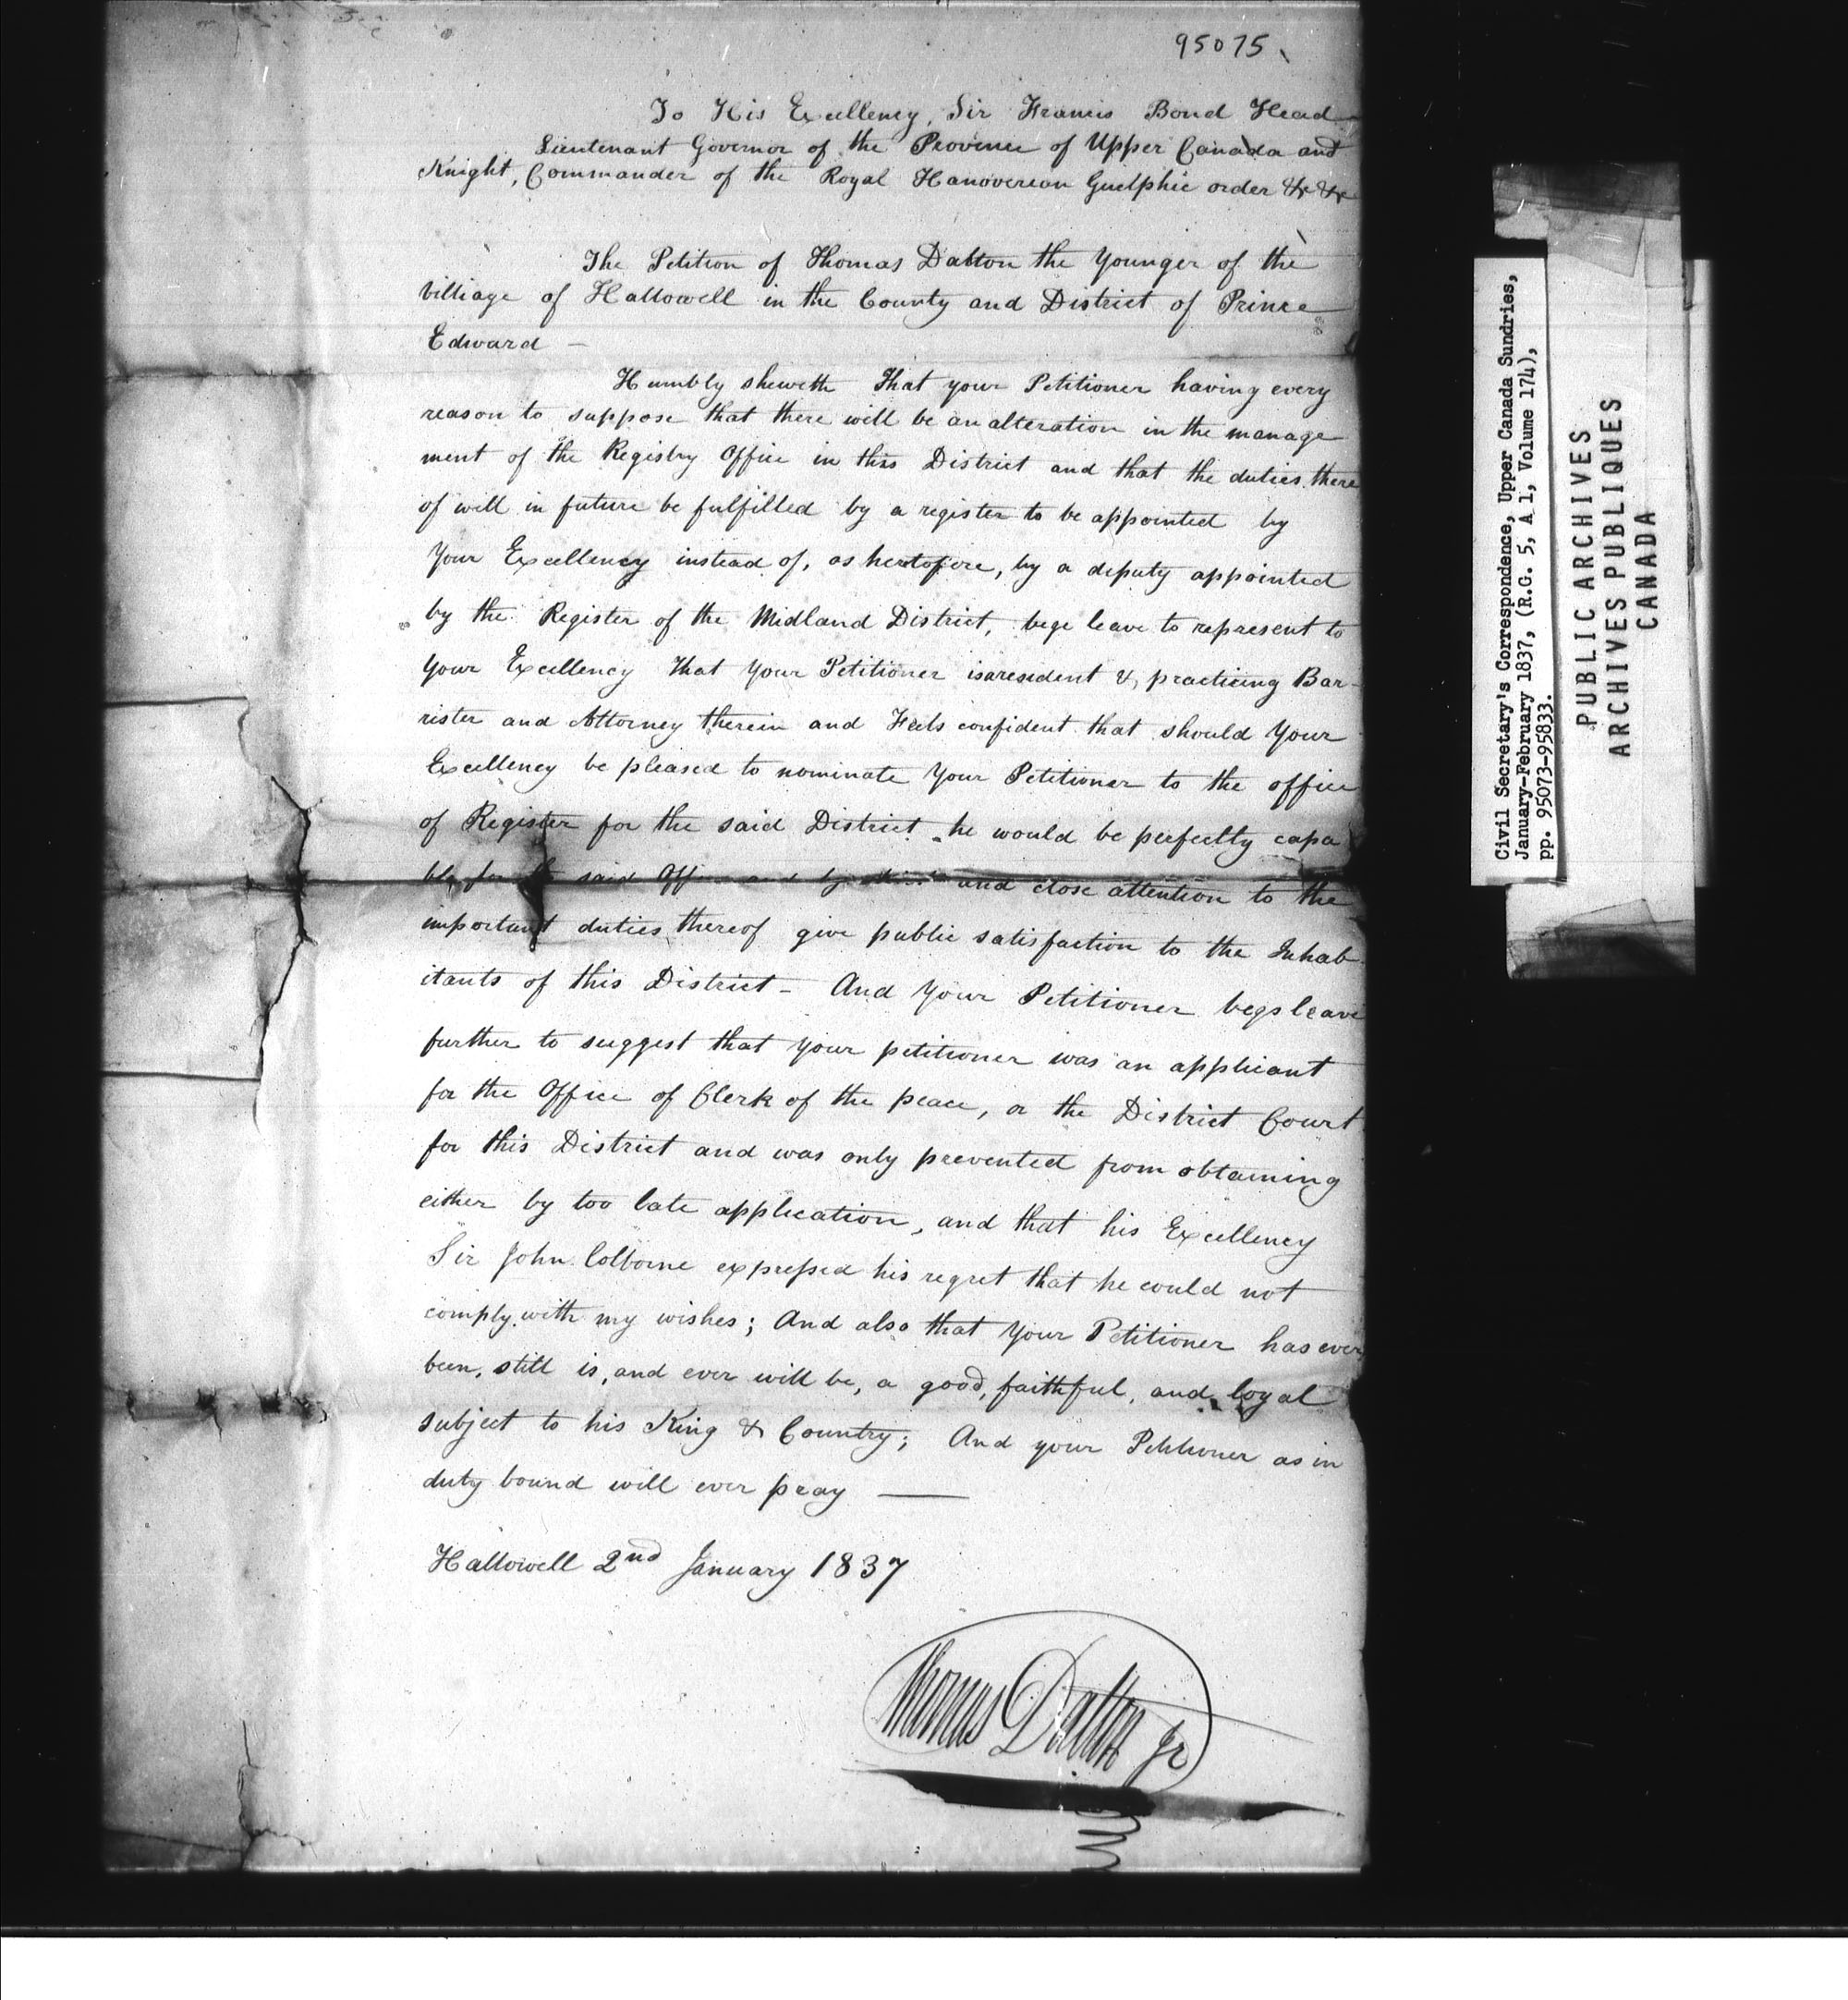 95075
To His Excellency, Sir Francis Bond Head
Lieutenant Governor of the Province of Upper Canada and
Knight, Commander of the Royal Hanoverian Guelphic order &c &c
The Petition of Thomas Dalton the Younger of the
villiage of Hallowell in the County and District of Prince
Edward —
Humbly sheweth That your Petitioner having every
reason to suppose that there will be an alteration in the manage
ment of the Registry Office in this District and that the duties there
of will in future be fulfilled by a register to be appointed by
Your Excellency instead of, as hertofore, by a deputy appointed
by the Register of the Midland District, begs leave to represent to
Your Excellency That Your Petitioner is a resident & practicing Bar-
rister and Attorney therein and Feels confident that should Your
Excellency be pleased to nominate Your Petitioner to the office
of Register for the said District he would be perfectly capa
ble for the said Office and by and close attention to the
important duties thereof give public satisfaction to the Inhab-
itants of this District — And Your Petitioner begs leave
further to suggest that your petitioner was an applicant
for the Office of Clerk of the peace, or the District Court
for this District and was only prevented from obtaining
either by too late application, and that his Excellency
Sir John Colborne expressed his regret that he could not
comply with my wishes; And also that Your Petitioner has ever
been, still is, and ever will be, a good, faithful, and loyal
subject to his King & Country; And your Petitioner as in
duty bound will ever pray —
Hallowell 2nd January 1837
Thomas Dalton Jr
Civil Secretary's Correspondence, Upper Canada Sundries,
January-February 1837, (R.G. 5, A 1, Volume 174),
pp. 95073-95833.
PUBLIC ARCHIVES
ARCHIVES PUBLIQUES
CANADA